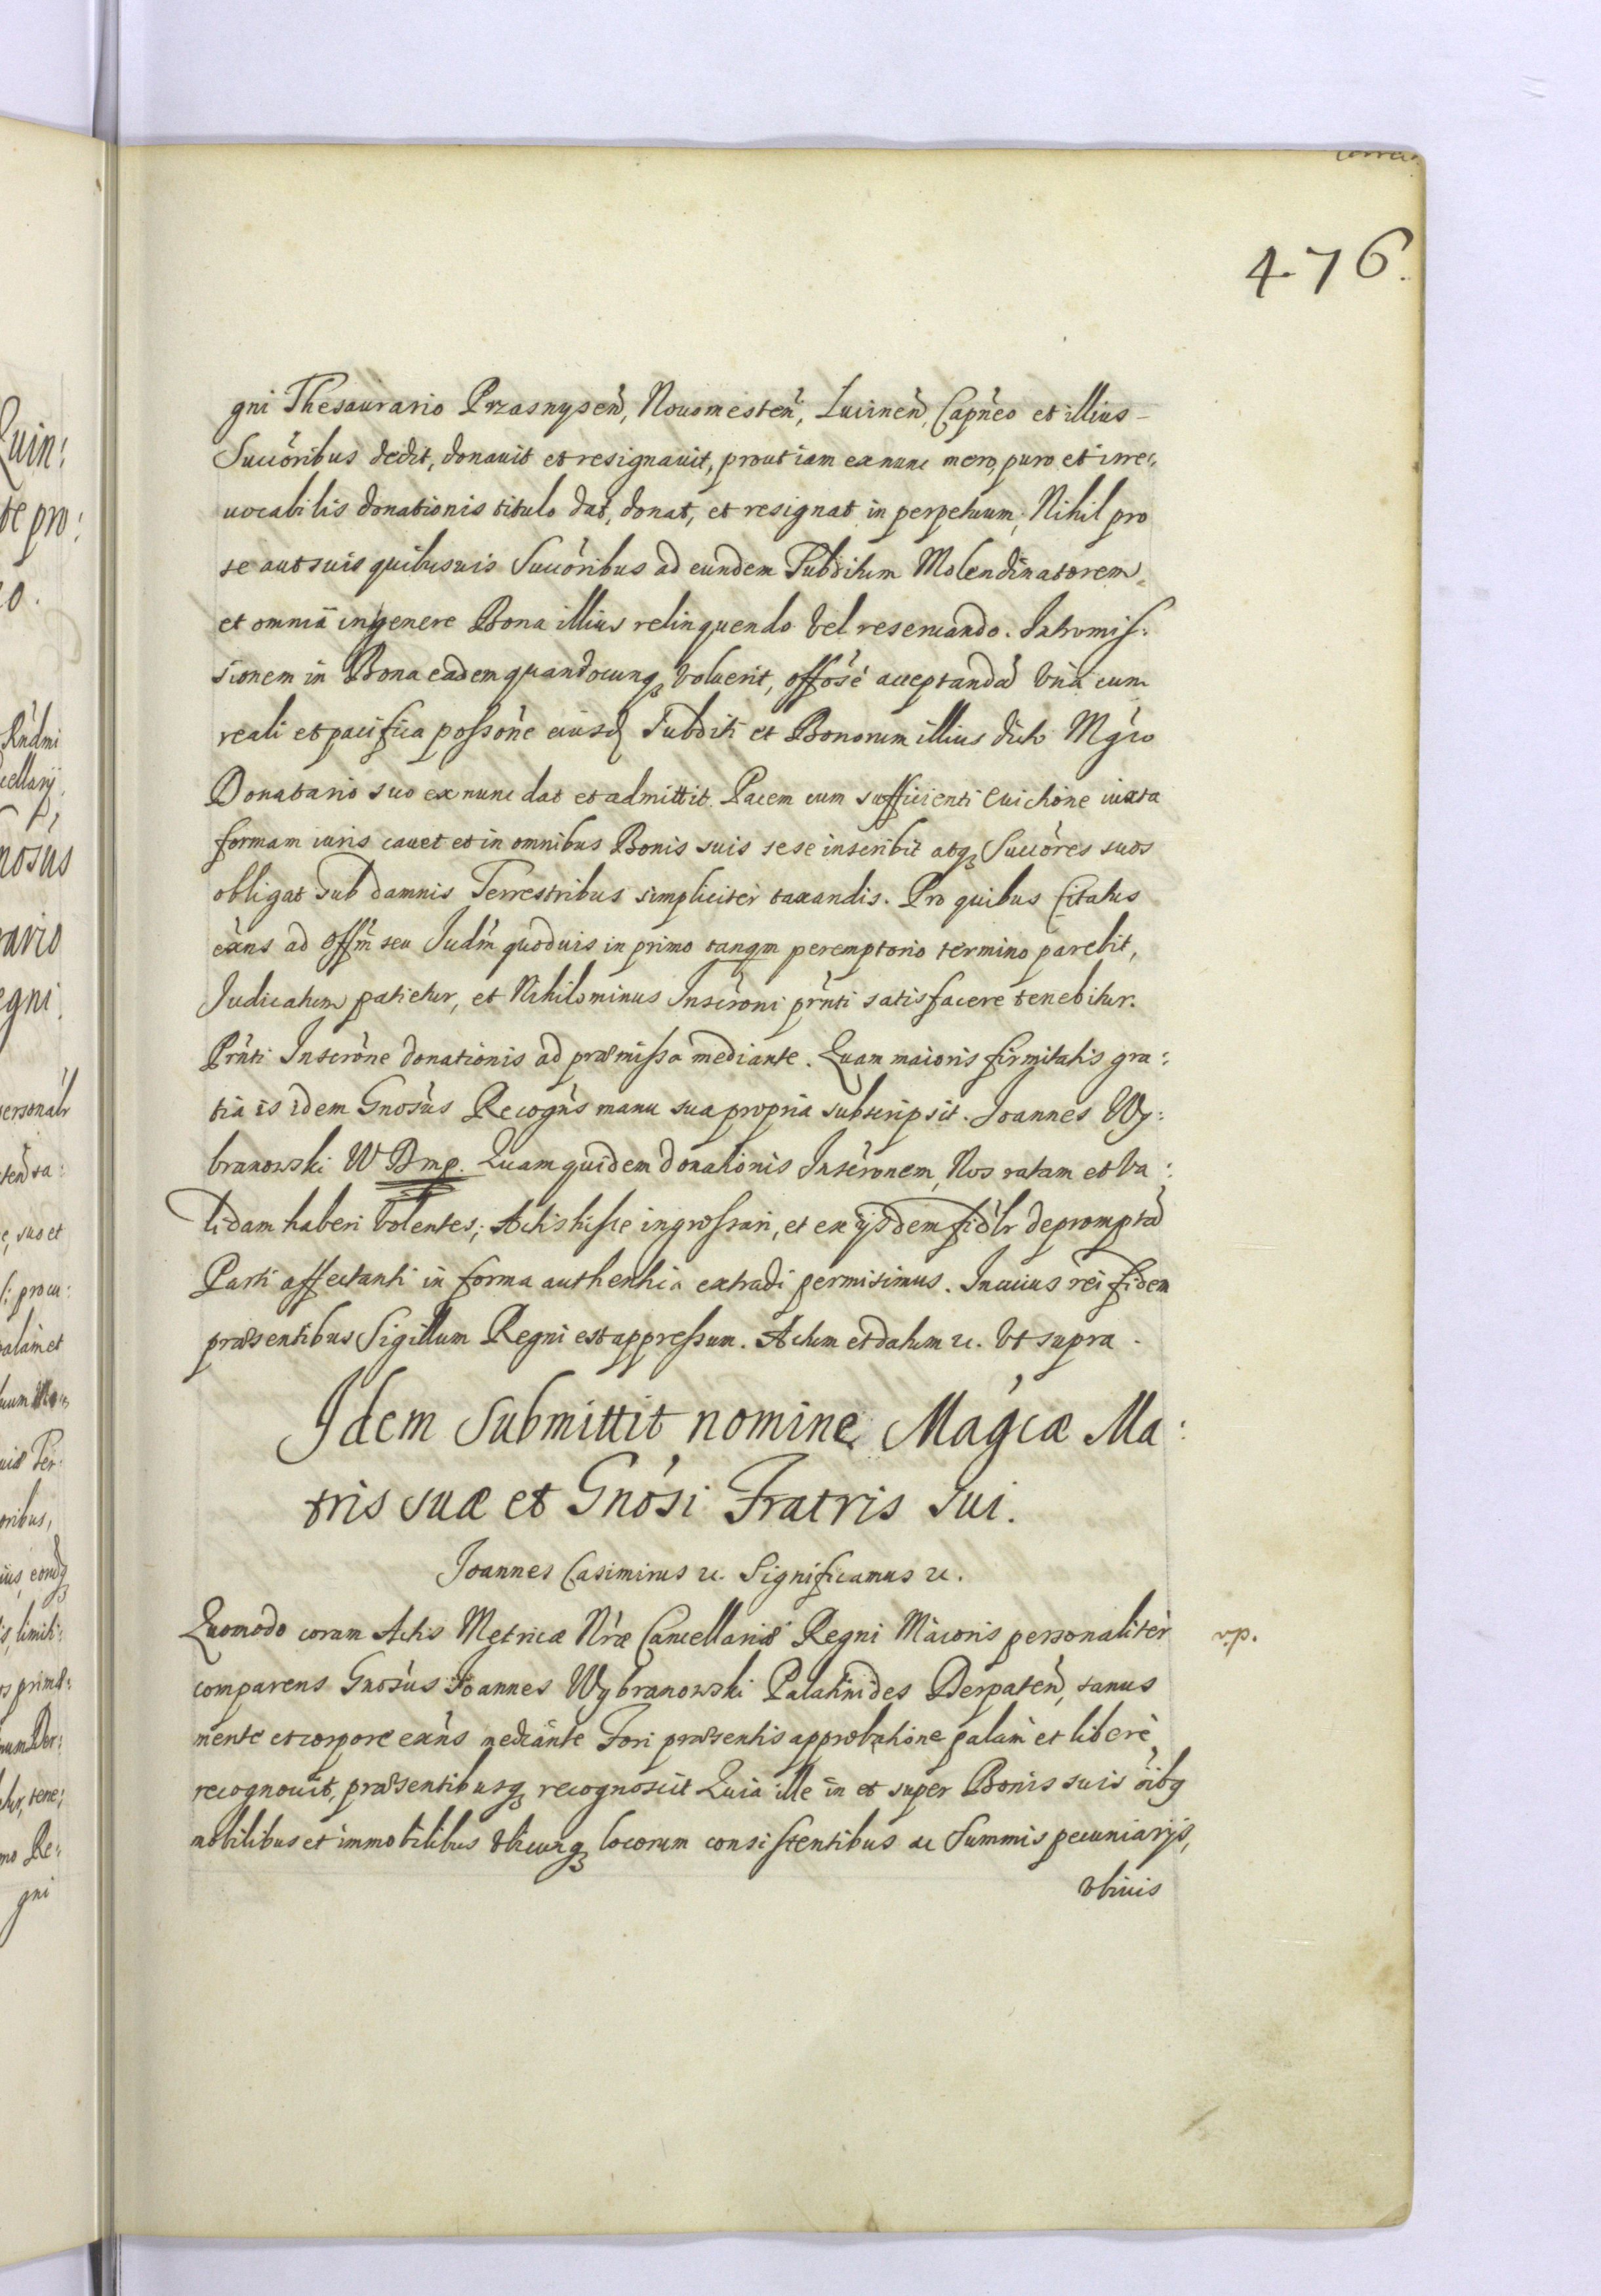 476.
gni Thesaurario Przasnyseñ, Nouomesteñ, Lucineñ, Capñeo et illius
Succõribus dedit, donauit et resignauit, prout iam ex nunc mero, puro et irre:
uocabilis donationis titulo dat, donat, et resignat in perpetuum, Nihil pro
se aut suis quibusuis Succõribus ad eundem Subditum Molendinatorem
et omnia in genere Bona illius relinquendo vel reseruando. Intromis:
sionem in Bona eadem quandocunq₃ voluerit, offõse acceptandã vna cum
reali et pacifica possõne eiusd Subditi et Bonorum illius dicto Mg̃co
Donatario suo ex nunc dat et admittit. Pacem cum sufficienti Euictione iuxta
formam iuris cauet et in omnibus Bonis suis sese inscribit atq₃ Succõres suos
obligat sub damnis Terrestribus simpliciter taxandis. Pro quibus Citatus
exñs ad Offm̃ seu Judm̃ quoduis in primo tanqm peremptorio termino parebit,
Judicatum patietur, et Nihilominus Inscrõni prñti satisfacere tenebitur.
Prñti Inscrõne donationis ad præmissa mediante. Quam maioris firmitatis gra:
tia is idem Gnosũs Recogñs manu sua propria subscripsit. Joannes Wy:
branowski W D mp. Quam quidem donationis Inscrõnem, Nos ratam et va:
lidam haberi volentes, Actis hisce ingrossari, et ex ijsdem fidlr depromptã
Parti affectanti in forma authentica extradi permisimus. In cuius rei fidem
præsentibus Sigillum Regni est appressum. Actum et datum ꝛc. vt supra.
Idem Submittit nomine Mag̃cæ Ma:
tris suæ et Gnõsi Fratris sui.
Joannes Casimirus ꝛc. Significamus ꝛc.
Quomodo coram Actis Metricæ Nr̃æ Cancellariæ Regni Maioris personaliter
v.p.
comparens Gnosũs Joannes Wybranowski Palatinides Derpateñ, sanus
mente et corpore exñs mediante Fori præsentis approbatione palam et libere
recognouit, præsentibusq₃ recognoscit Quia ille in et super Bonis suis oĩbq
mobilibus et immobilibus vbicunq₃ locorum consistentibus ac Summis pecuniarijs,
vbiuis